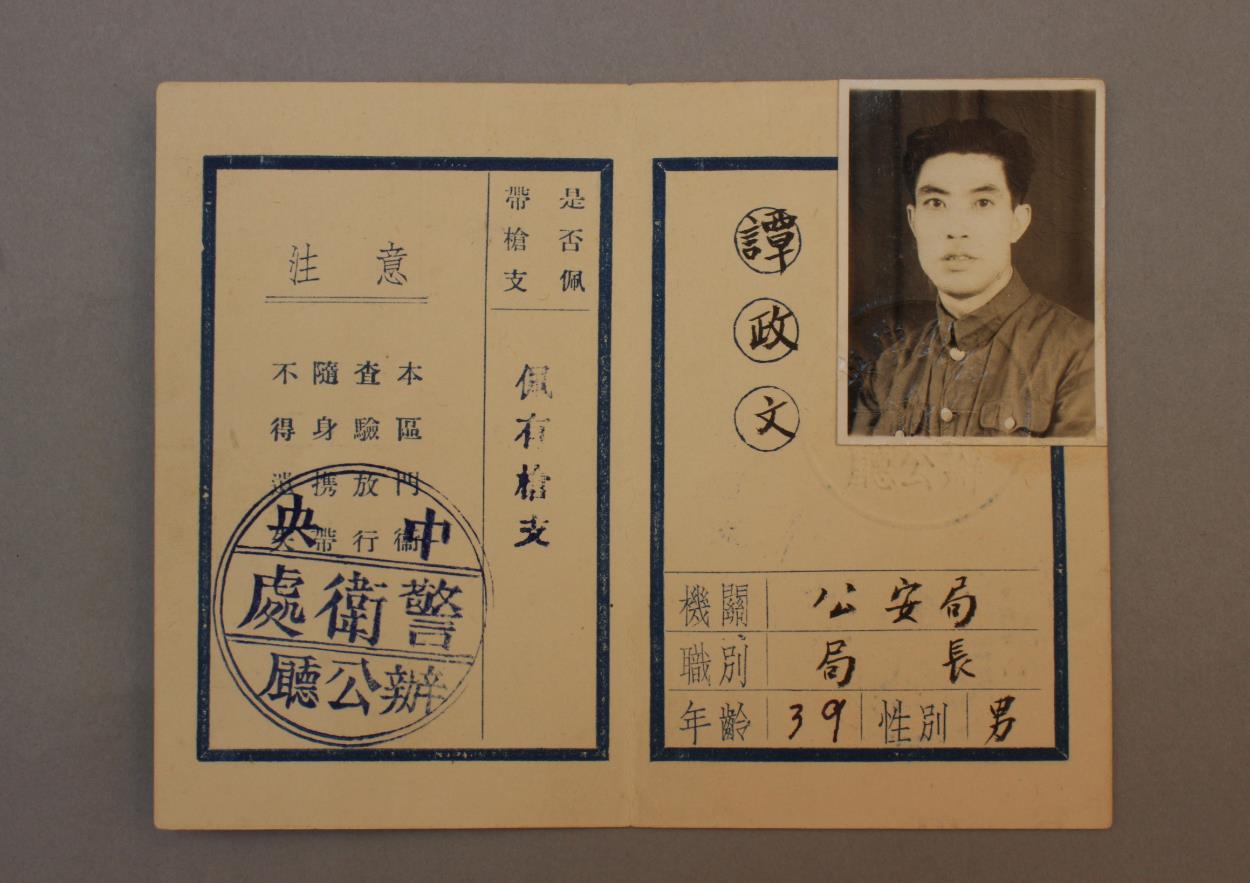 譚政文
機關 公安局
職別 局長
年齡 39 性別 男
是否佩
帶槍支
佩有槍支
注意
本區門衛
查驗放行
隨身携帶
不得遺失
中央
警衛處
辦公廳